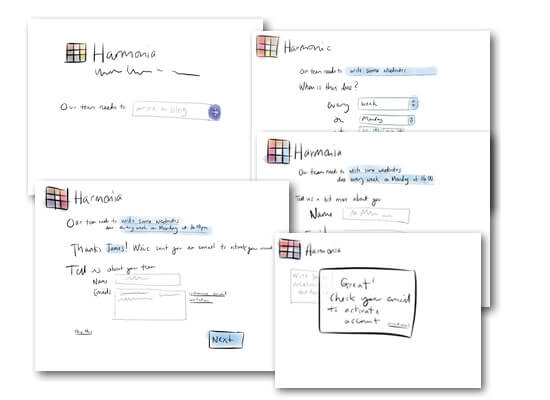 Harmonia
Our team needs to write a blog
Harmonic
Our team needs to write some websites
When is this due?
every week
on Monday
at
Harmonia
Our team needs to write some websites
due every week on Monday at 16:00
Tell us a bit more about you
Name
Harmonia
Our team needs to write some websites
due every week on Monday at
Thanks James! We've sent you an email to
Tell us about your team
Name
Emails
Next
Harmonia
Great!
Check your email
to activate
account